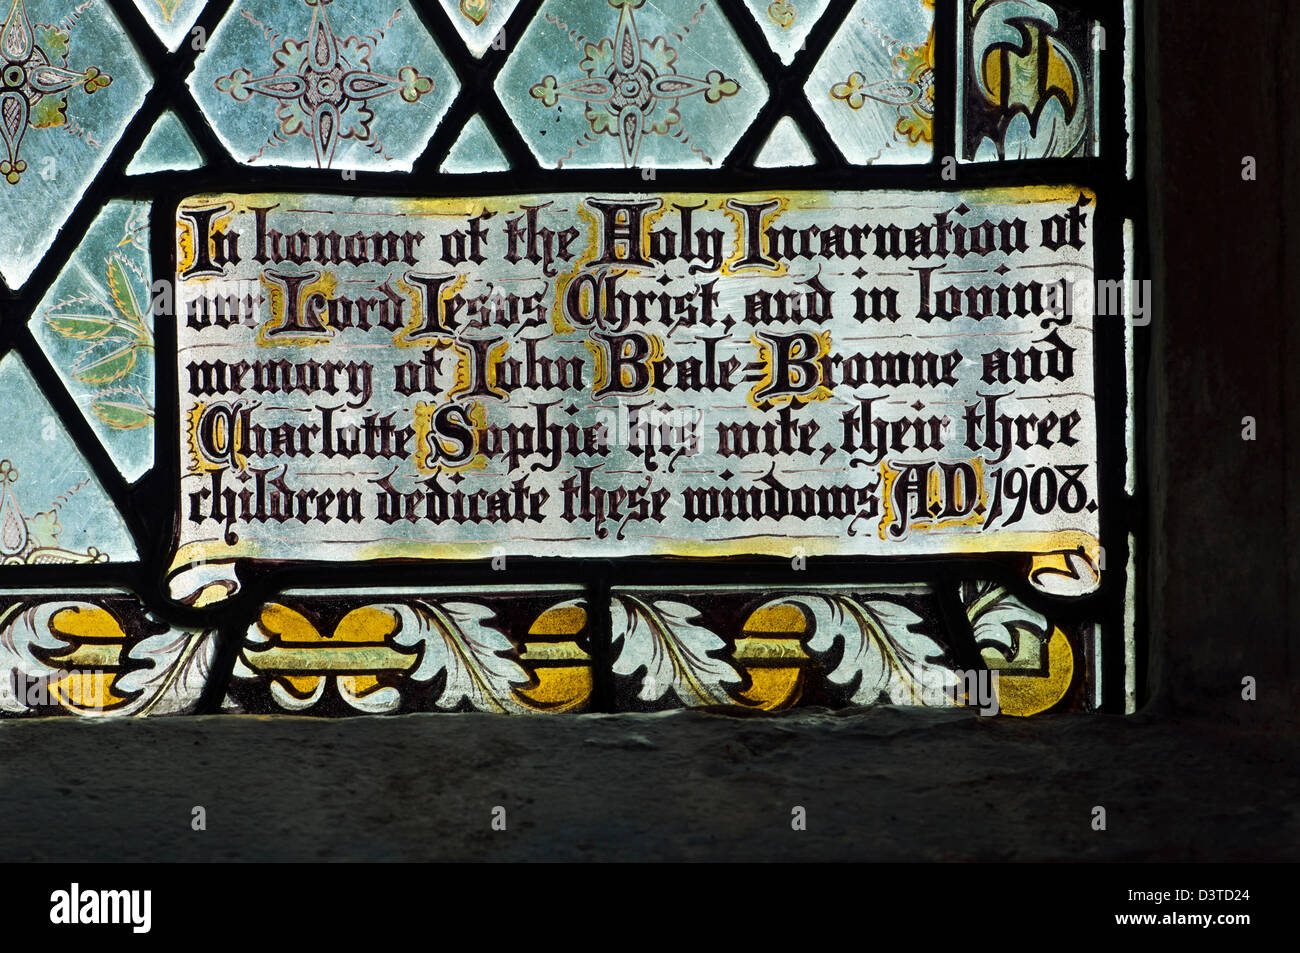 In honour of the Holy Incarnation of
our Lord Iesus Christ, and in loving
memory of Iohn Beale=Browne and
Charlotte Sophia his wife, their three
children dedicate these windows A.D. 1908.
a
a
a
a
a
a
a
alamy
alamy
Image ID: D3TD24
www.alamy.com